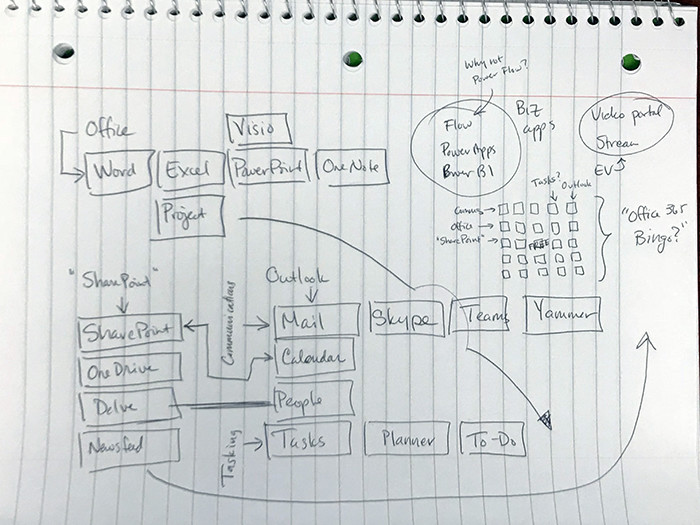 Why not
Power Flow?
Office
Visio
Flow
Biz
apps
Video portal
Stream
Word
Excel
PowerPoint
OneNote
PowerApps
Power BI
EV
Tasks?
Outlook
Project
Office
"SharePoint"
FREE
"Office 365
Bingo?"
"SharePoint"
Outlook
Communications
SharePoint
Mail
Skype
Teams
Yammer
OneDrive
Calendar
Delve
People
Newsfeed
Tasking
Tasks
Planner
To-Do